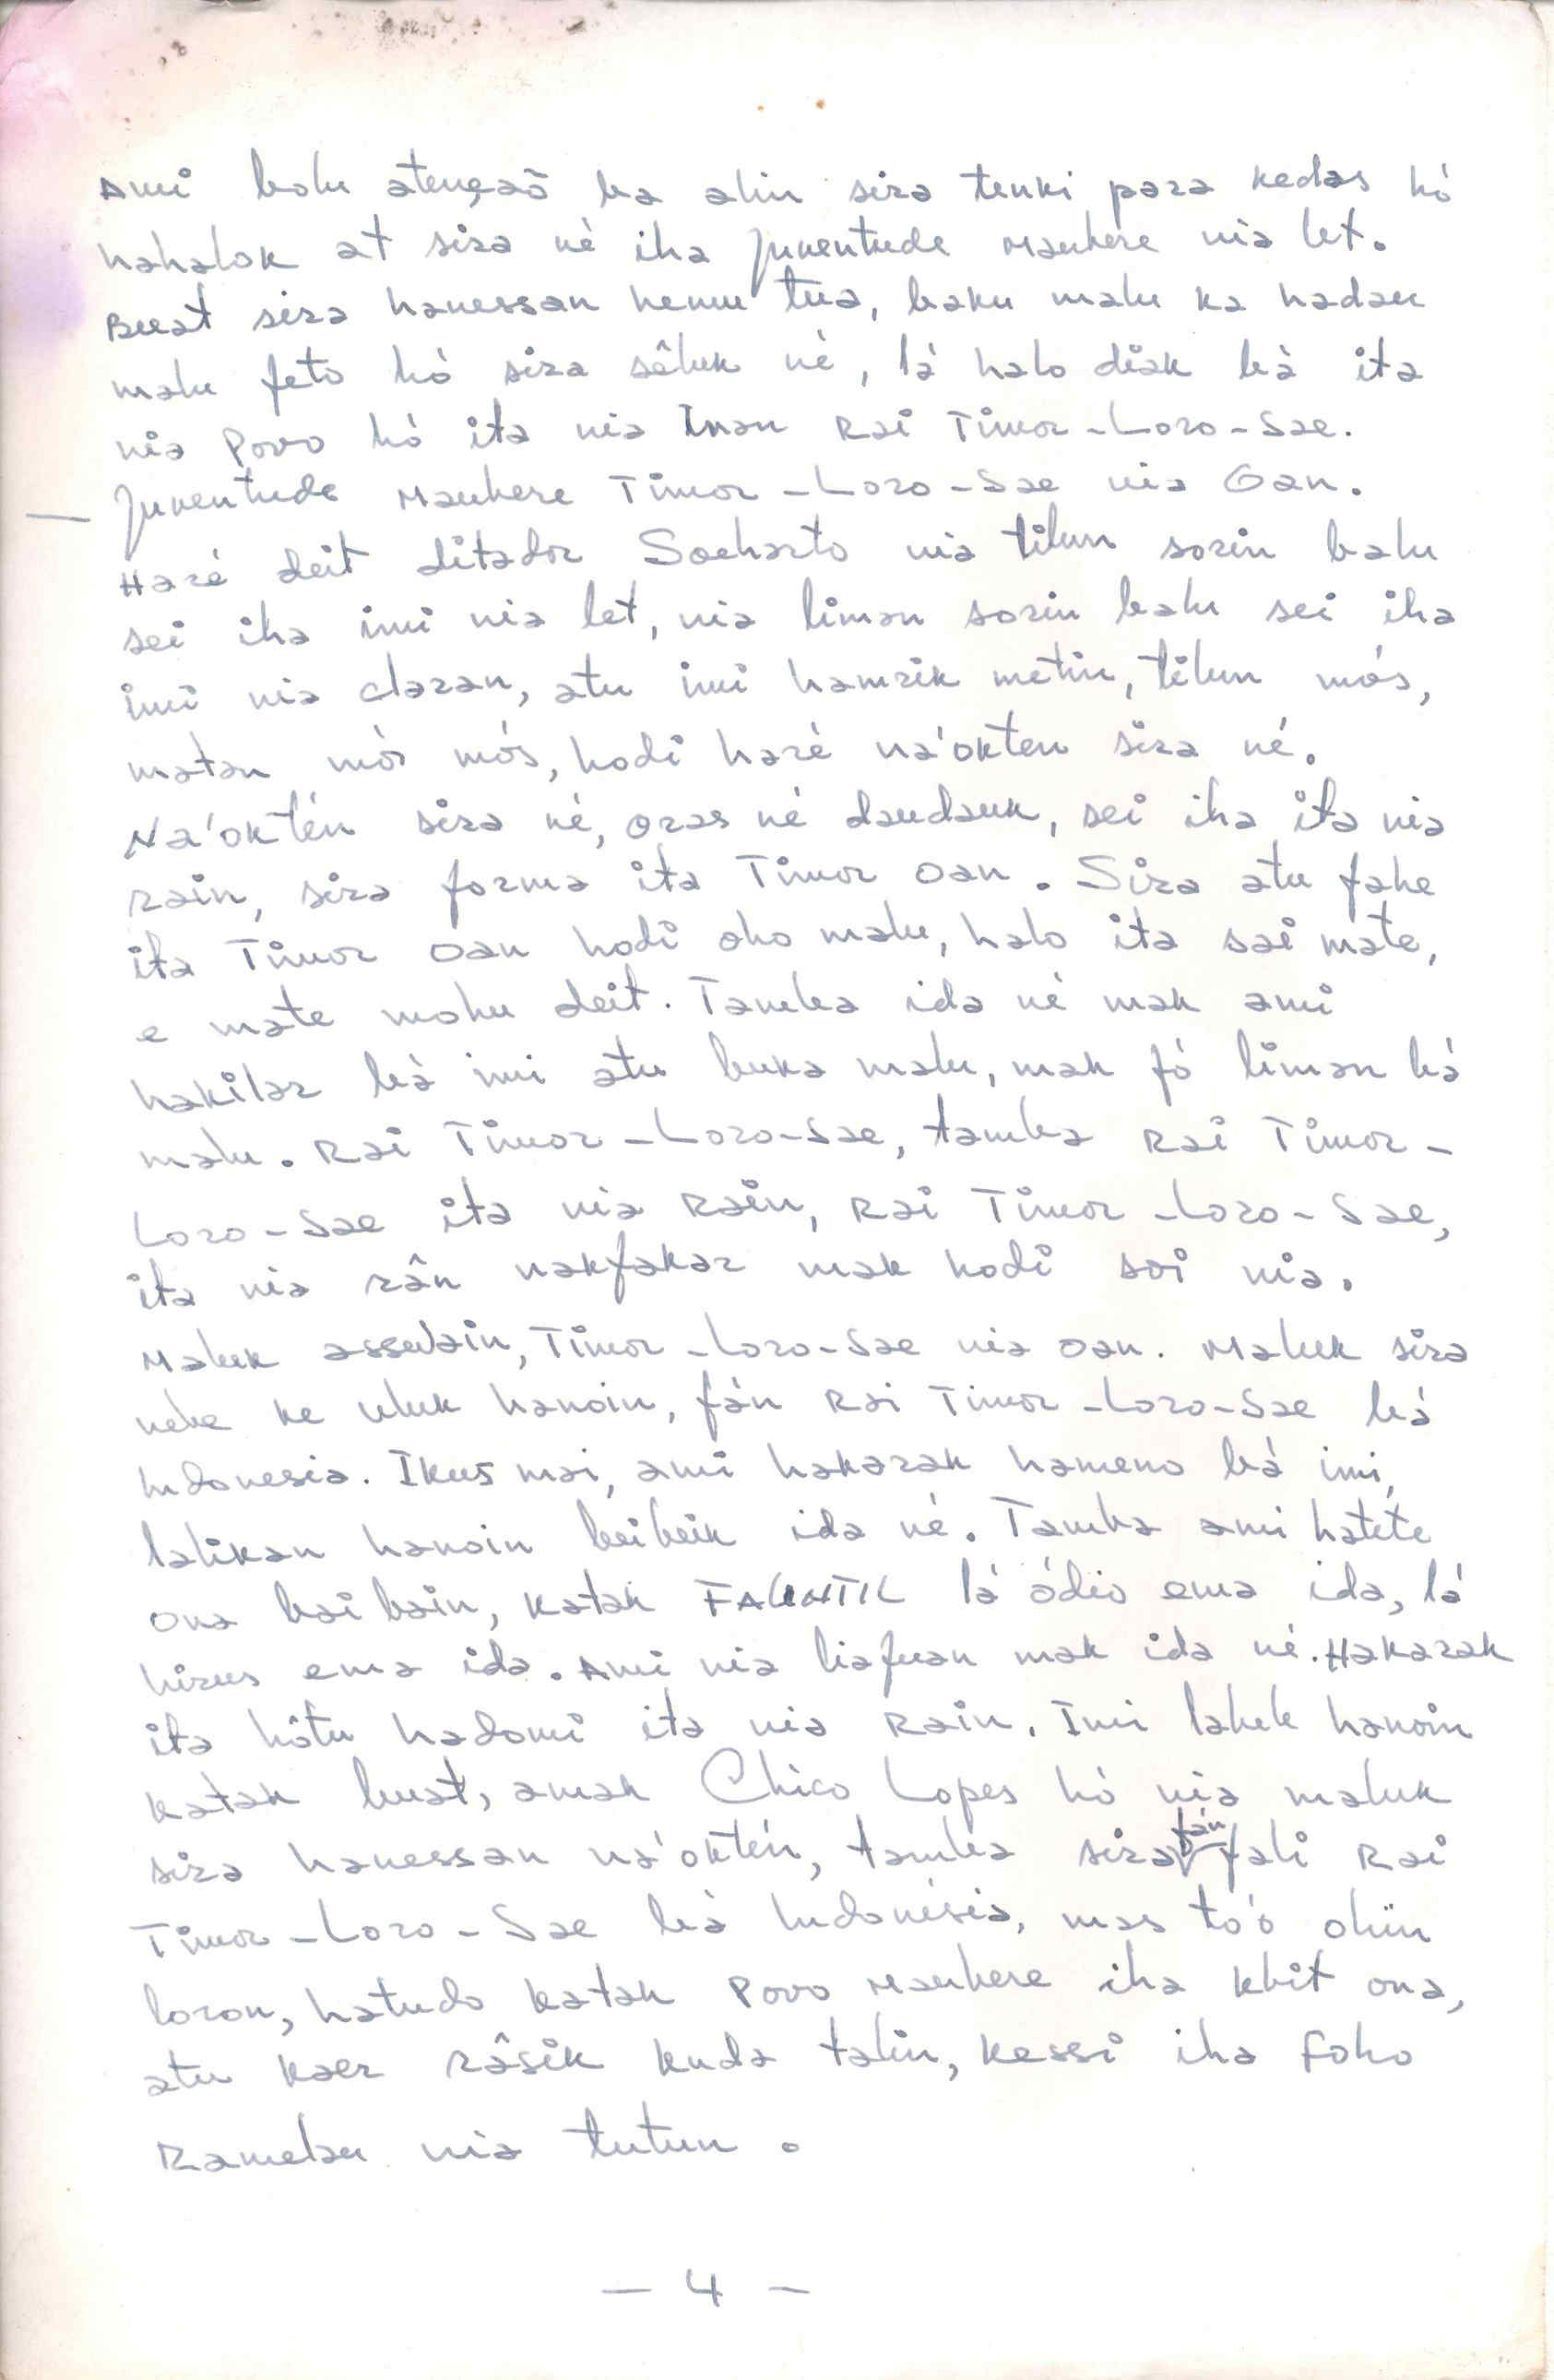 Ami bolu atençaõ ba alin sira tenki para kedas hó
hahalok at sira né iha Juventude Maubere nia let.
Buat sira hanessan hemu tua, baku malu ka hadau
malu feto hó sira sêluk né, lá halo diak bá ita
nia Povo hó ita nia Inan Rai Timor-Loro-Sae.
— Juventude Maubere Timor-Loro-Sae nia Oan.
Haré deit ditador Soeharto nia tilun sorin balu
sei iha imi nia let, nia liman sorin balu sei iha
imi nia claran, atu imi hamrik metin, tilun mós,
matan mós mós, hodi haré ná'okten sira né.
Na'oktén sira né, oras né daudauk, sei iha ita nia
rain, sira forma ita Timor oan. Sira atu fahe
ita Timor oan hodi oho malu, halo ita sai mate,
e mate mohu deit. Tamba ida né mak ami
hakilar bá imi atu buka malu, mak fó liman bá
malu. Rai Timor-Loro-Sae, tamba Rai Timor-
Loro-Sae ita nia Rain, Rai Timor-Loro-Sae,
ita nia rân nakfakar mak hodi soi nia.
Maluk assuwain, Timor-Loro-Sae nia oan. Maluk sira
nebe ke uluk hanoin, fán Rai Timor-Loro-Sae bá
Indonesia. Ikus mai, ami hakarak hameno bá imi,
lalikan hanoin beibeik ida né. Tamba ami hatete
ona bai bain, katak FALINTIL lá ódio ema ida, lá
hirus ema ida. Ami nia liafuan mak ida né. Hakarak
ita hôtu hadomi ita nia Rain. Imi labele hanoin
katak buat, amak Chico Lopes hó nia maluk
sira hanessan ná'oktén, tamba sira fán fali Rai
Timor-Loro-Sae bá Indonésia, mas tó'o ohin
loron, hatudo katak Povo Maubere iha kbit ona,
atu kaer râsik kuda talin, kessi iha Foho
Ramelau nia tutun.
— 4 —